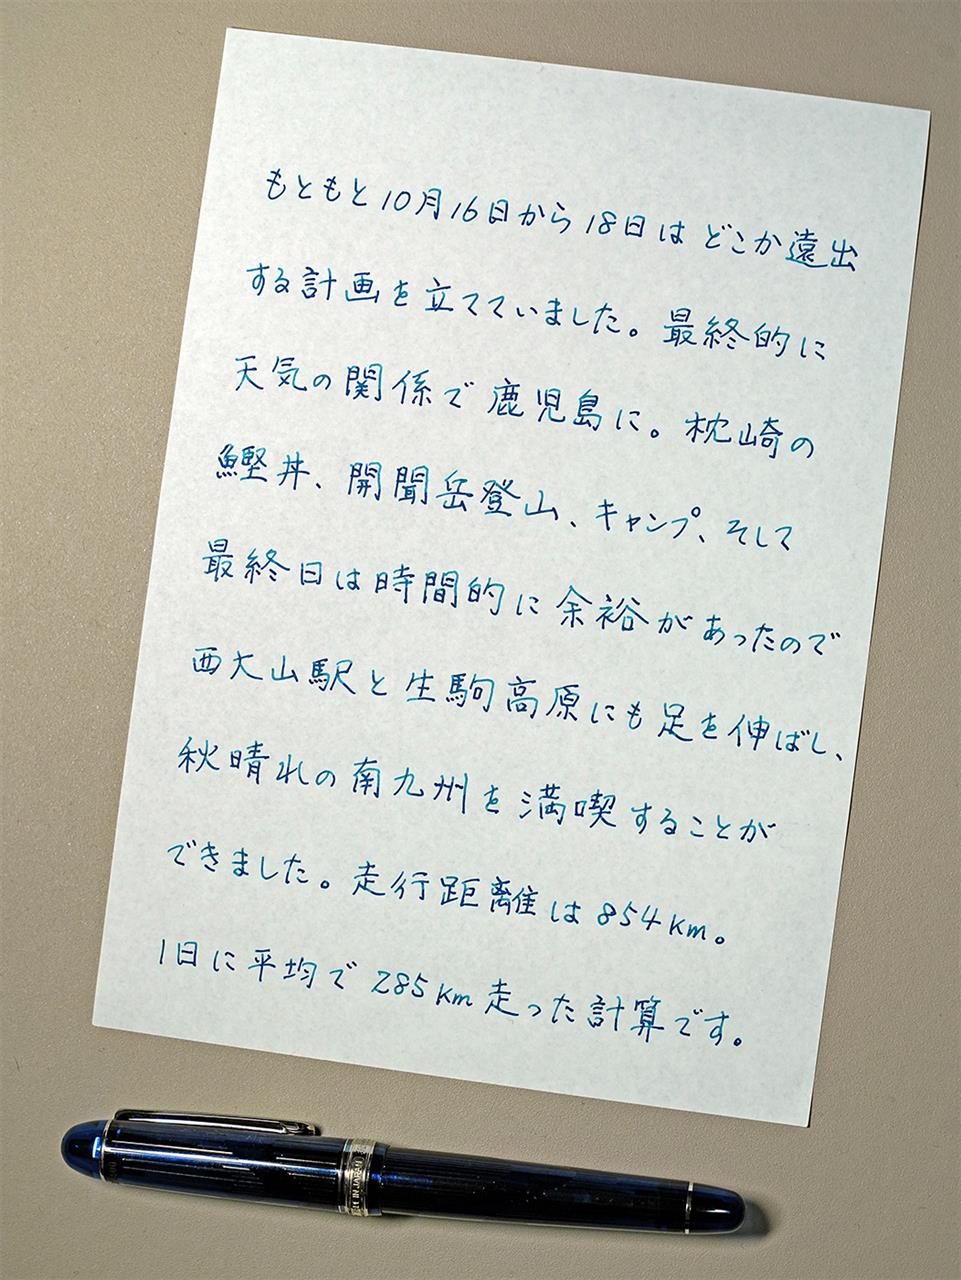 もともと10月16日から18日はどこか遠出
する計画を立てていました。最終的に
天気の関係で鹿児島に。枕崎の
鰹丼、開聞岳登山、キャンプ、そして
最終日は時間的に余裕があったので
西大山駅と生駒高原にも足を伸ばし、
秋晴れの南九州を満喫することが
できました。走行距離は854km。
1日に平均で285km走った計算です。
MADE IN JAPAN